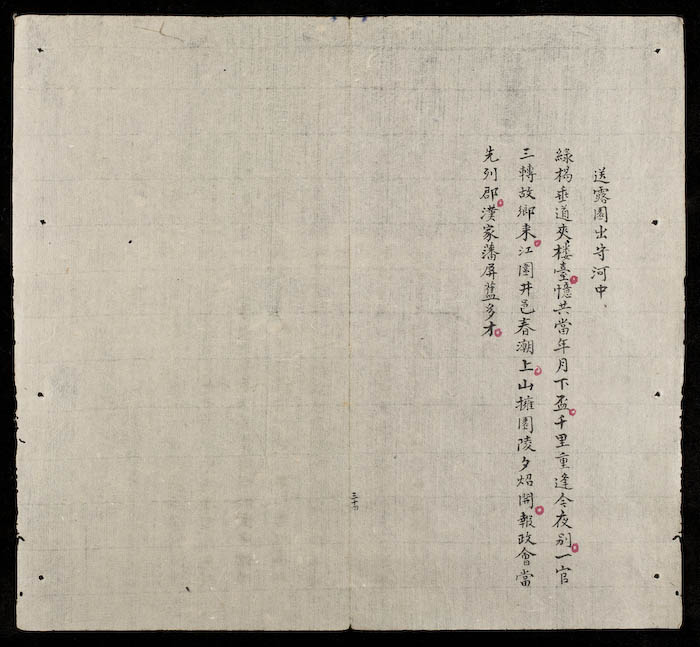 送露園出守河中
綠楊垂道夾楼臺憶共當年月下盃千里重逢今夜别一官
三轉故鄉來江圍井邑春潮上山擁園陵夕炤開報政會當
先列郡漢家藩屏藍多才
三十